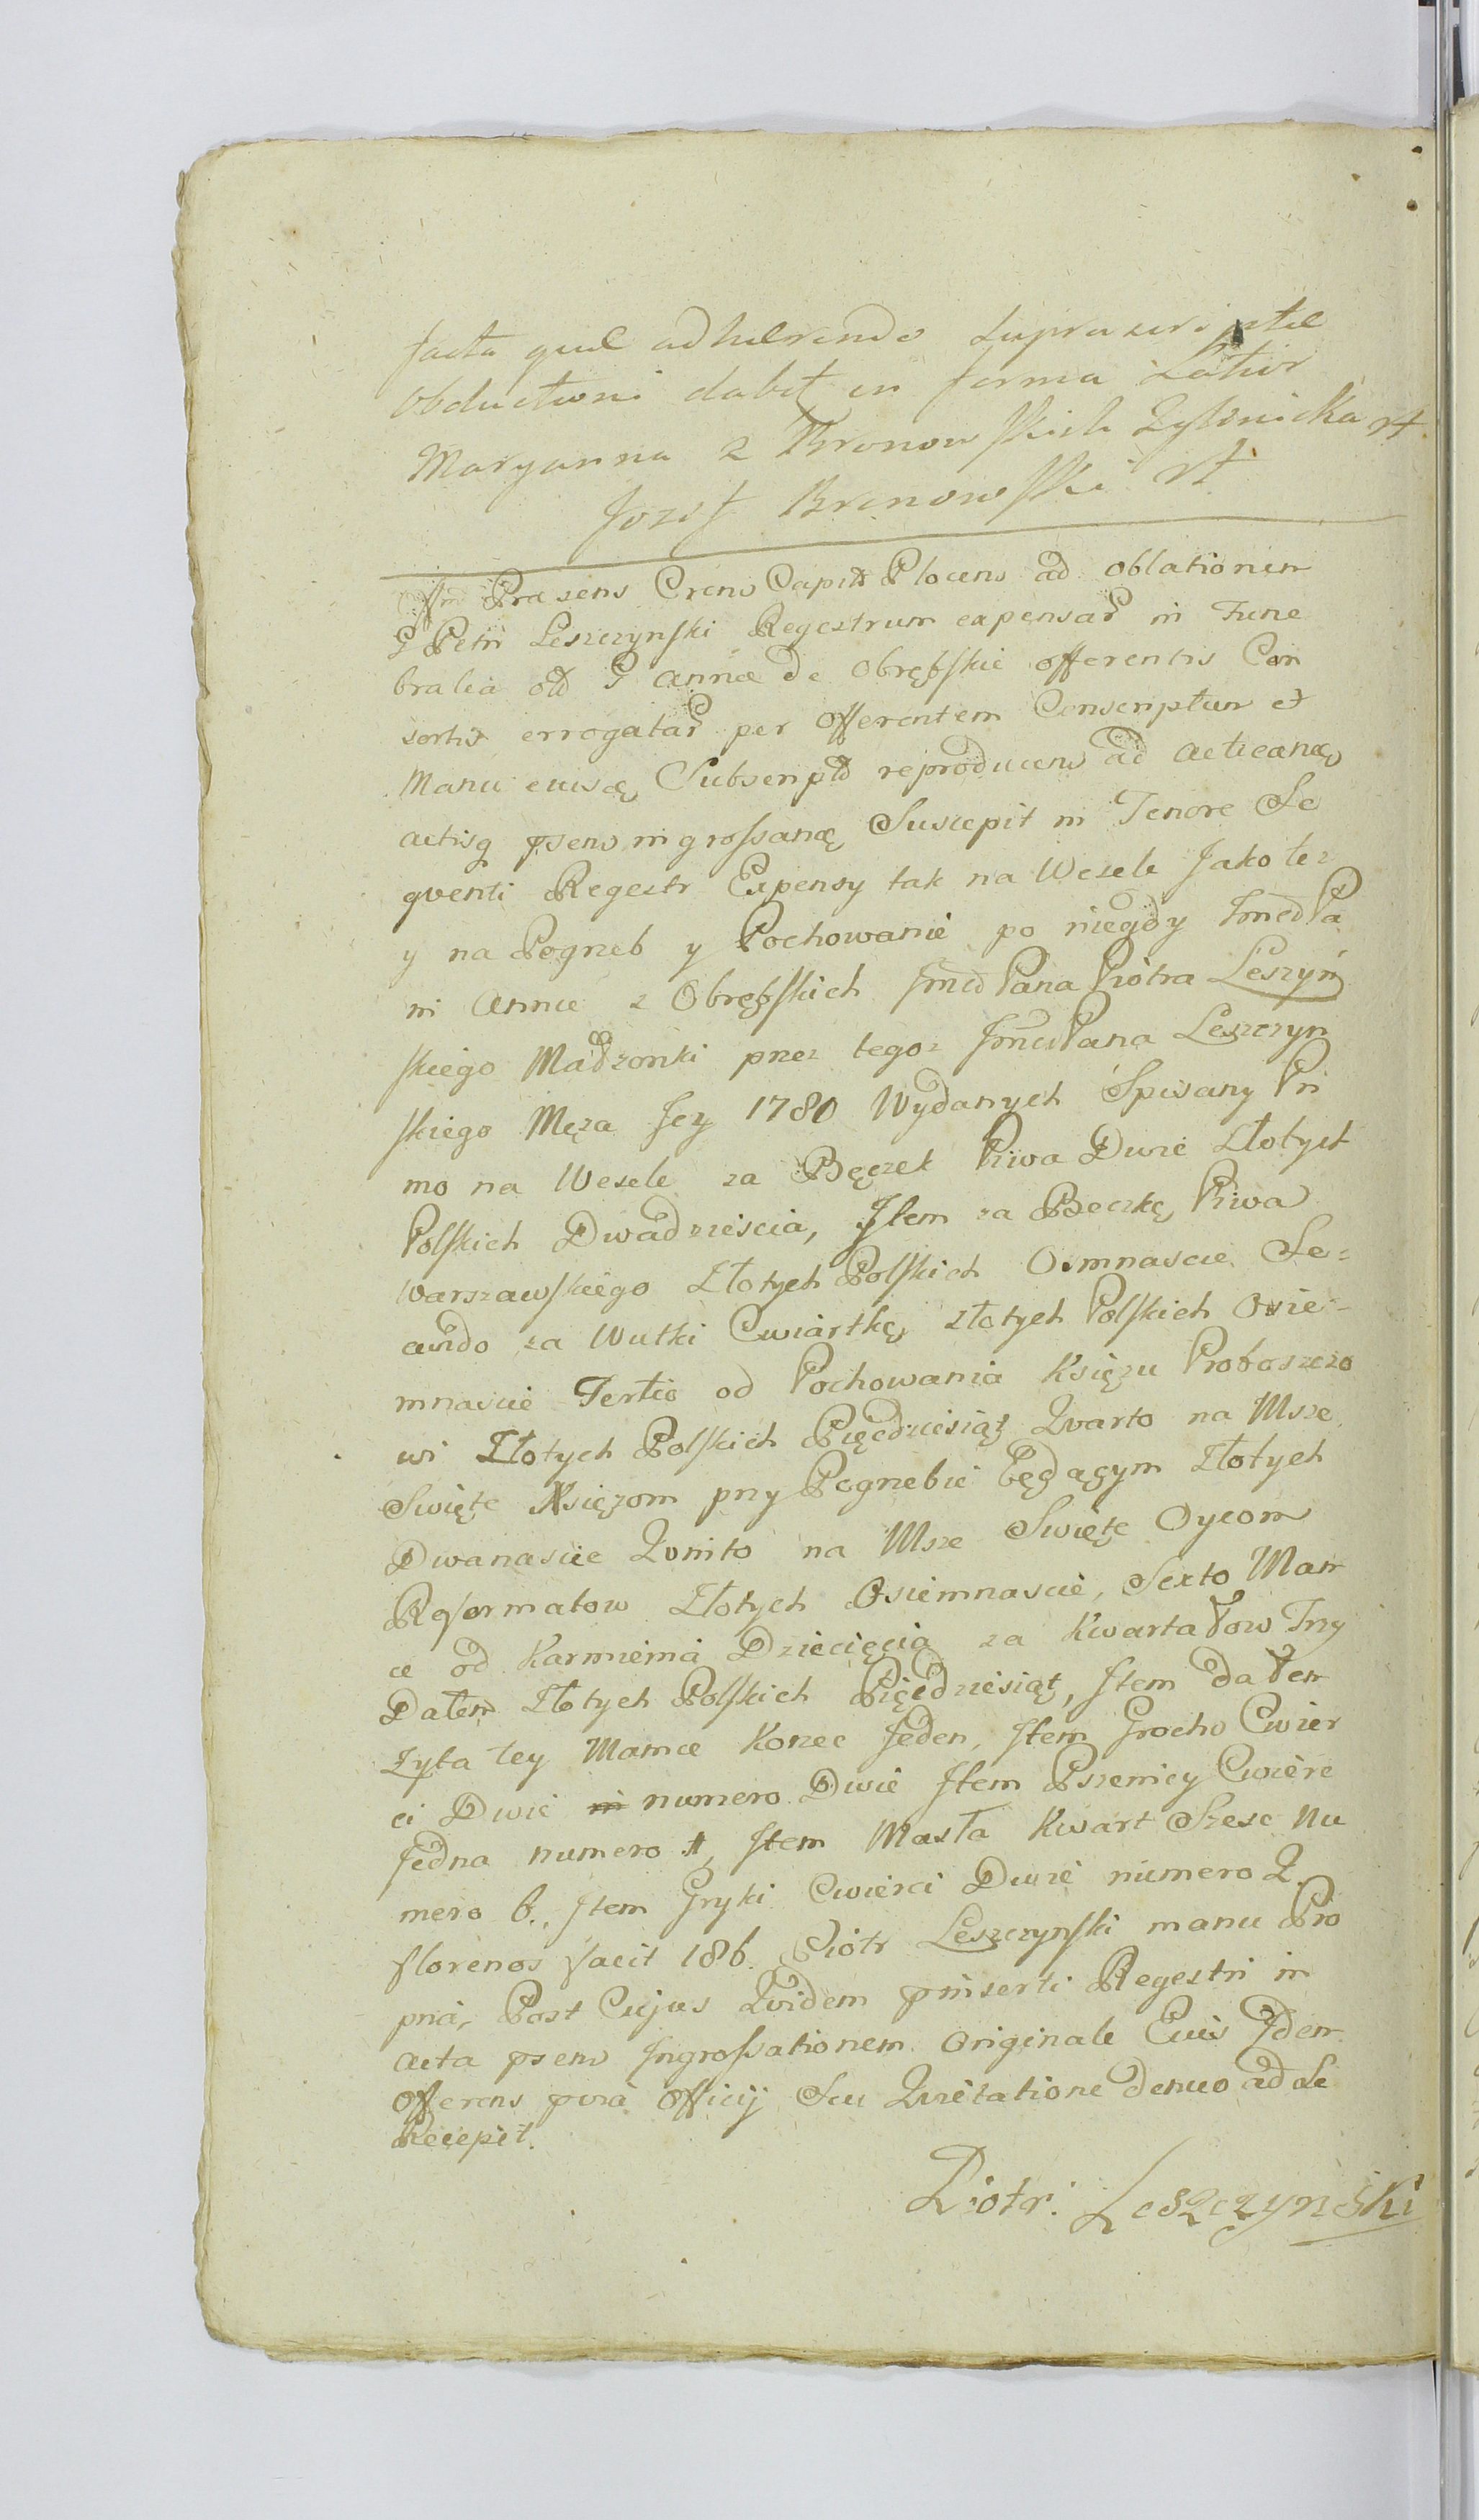 facta quae adhaerendo supra scriptae
obductioni dabit in forma Latior
Maryanna z Bronowskich Zglinicka rt
Jozef Bronowski rt
Praesens Crens Capit Plocens ad oblationem
G Petri Leszczynski Regestrum expensar in Fune
bralia old G Annae de Obrębskie offerentis Con
sortis errogatar per Offerentem Conscriptum et
Manu eiusq Subscriptd reproducens ad acticanq
actisq psens ingrossanq Suscepit in Tenore Se
quenti Regestr Expensy tak na Wesele Jako tez
y na Pogrzeb y Pochowanie po niegdy Jmcd Pa
ni Annie z Obrębskich Jmcd Pana Piotra Leszyń
skiego Madzonki przez tegoz Jmcd Pana Leszczyn
skiego Męza Jey 1780 Wydanych Spisany Pri
mo na Wesele za Bęczek Piwa Dwie Złotych
Polskich Dwadziescia, Jtem za Beczkę Piwa
Warszawskiego Złotych Polskich Osmnascie Se=
cundo za Wutki Cwiartkę złotych Polskich Osie-
mnascie Tertio od Pochowania Księzu Proboszczo
wi Złotych Polskich Pięcdziesiąt Qvarto na Msze
Swięte Xsięzom przy Pogrzebie będącym Złotych
Dwanascie Qvinto na Msze Swięte Oycom
Reformatow Złotych Osiemnascie, Sexto Mam
ce od Karmienia Dziecięcia za Kwartałow Trzy
Dałem Złotych Polskich Pięcdziesiąt, Jtem dałem
Zyta tey Mamce Korzec Jeden, Jtem Grochu Cwier
ci Dwie numero Dwie Jtem Pszenicy Cwierc
Jedna numero 1, Jtem Masła Kwart Szesc Nu
mero 6., Jtem Gryki Cwierci Dwie numero 2.
florenos facit 186. Piotr Leszczynski manu Pro
pria, Post Cujus Qvidem pinserti Regestri in
acta psens Jngrossationem Originale Eius Jdem
Offerens pvra Officij Sui Qvietatione denuo ad Se
Recepit.
Piotr: Leszczynski